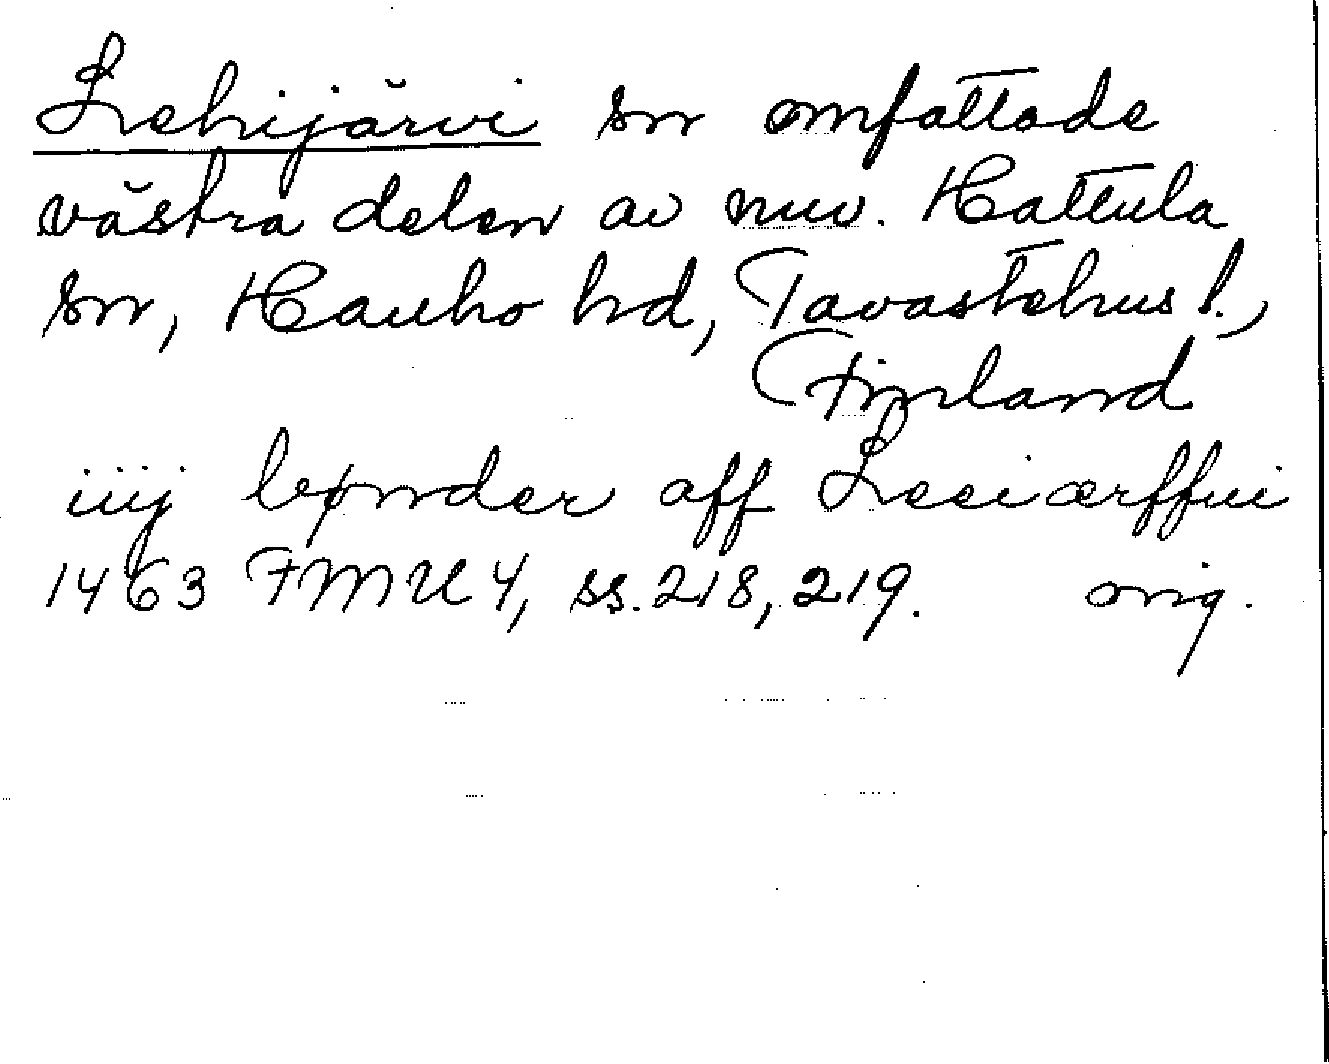 Lehijärvi sn omfattade
västra delen av nuv. Hattula
sn, Hauho hd, Tavastehus l.,
Finland
iiij bønder aff Leeiærffui
1463 FMU 4, ss. 218, 219. orig.